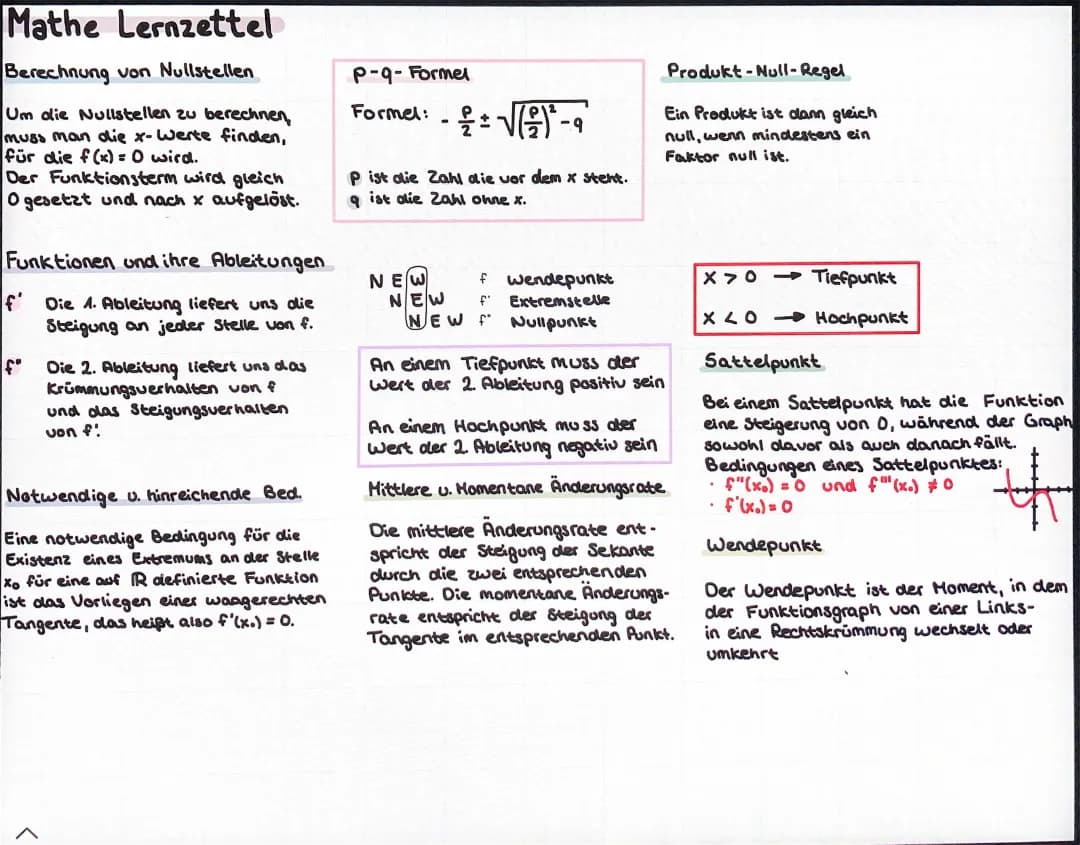 Mathe Lernzettel
Berechnung von Nullstellen
Um die Nullstellen zu berechnen,
muss man die x-Werte finden,
für die f(x) = 0 wird.
Der Funktionsterm wird gleich
0 gesetzt und nach x aufgelöst.
p-q-Formel
Formel: - p/2 ± √((p/2)² - q)
p ist die Zahl die vor dem x steht.
q ist die Zahl ohne x.
Produkt-Null-Regel
Ein Produkt ist dann gleich
null, wenn mindestens ein
Faktor null ist.
Funktionen und ihre Ableitungen
f' Die 1. Ableitung liefert uns die
Steigung an jeder Stelle von f.
f" Die 2. Ableitung liefert uns das
Krümmungsverhalten von f
und das Steigungsverhalten
von f'.
N E W f Wendepunkt
N E W f' Extremstelle
N E W f" Nullpunkt
An einem Tiefpunkt muss der
Wert der 2. Ableitung positiv sein
An einem Hochpunkt muss der
Wert der 2. Ableitung negativ sein
x > 0 → Tiefpunkt
x < 0 → Hochpunkt
Sattelpunkt
Bei einem Sattelpunkt hat die Funktion
eine Steigerung von 0, während der Graph
sowohl davor als auch danach fällt.
Bedingungen eines Sattelpunktes:
· f"(x₀) = 0 und f'''(x₀) ≠ 0
· f'(x₀) = 0
Notwendige u. hinreichende Bed.
Eine notwendige Bedingung für die
Existenz eines Extremums an der Stelle
x₀ für eine auf ℝ definierte Funktion
ist das Vorliegen einer waagerechten
Tangente, das heißt also f'(x₀) = 0.
Mittlere u. Momentane Änderungsrate
Die mittlere Änderungsrate ent-
spricht der Steigung der Sekante
durch die zwei entsprechenden
Punkte. Die momentane Änderungs-
rate entspricht der Steigung der
Tangente im entsprechenden Punkt.
Wendepunkt
Der Wendepunkt ist der Moment, in dem
der Funktionsgraph von einer Links-
in eine Rechtskrümmung wechselt oder
umkehrt